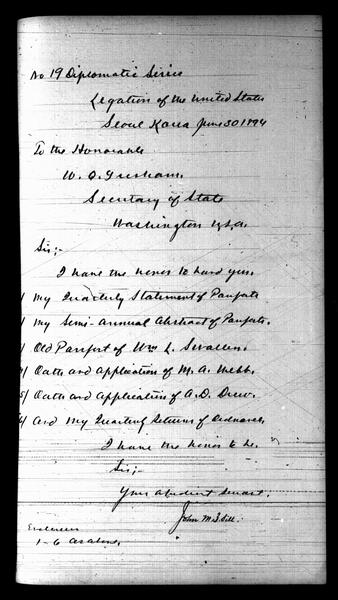 No 19 Diplomatic Series
Legation of the United States
Seoul Korea June 30 1894
To the Honorable
W. Q. Gresham
Secretary of State
Washington U.S.A.
Sir;-
I have the honor to hand you.
1/ My Quarterly Statement of Passports
/ My Semi-Annual Abstract of Passports.
/ Old Passport of Wm L. Swallen.
4/ Oath and Application of M. A. Webb.
5/ Oath and Application of A. D. Drew.
6/ And My Quarterly Returns of
I have the honor to be.
Sir;-
Your obedient servant.
John M. B. Sill.
Enclosures
1-6 as above.